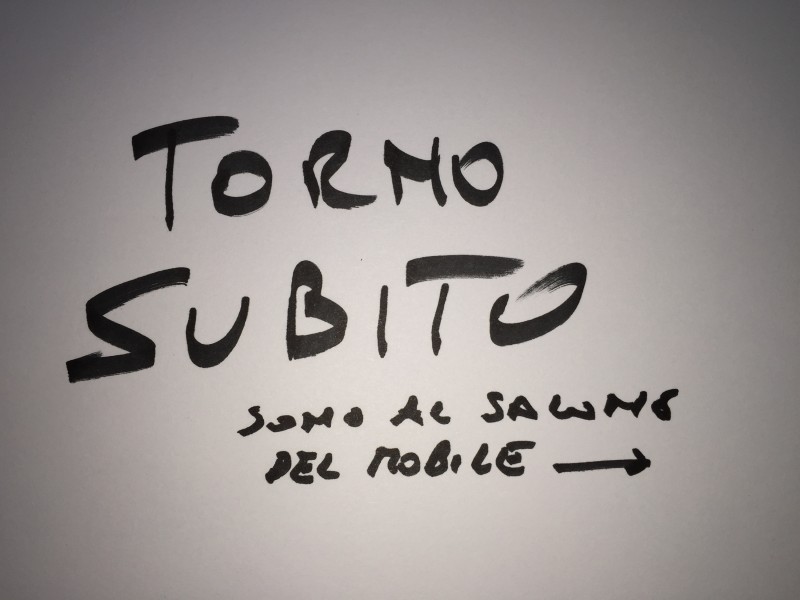 TORNO
SUBITO
SONO AL SALONE
DEL MOBILE →